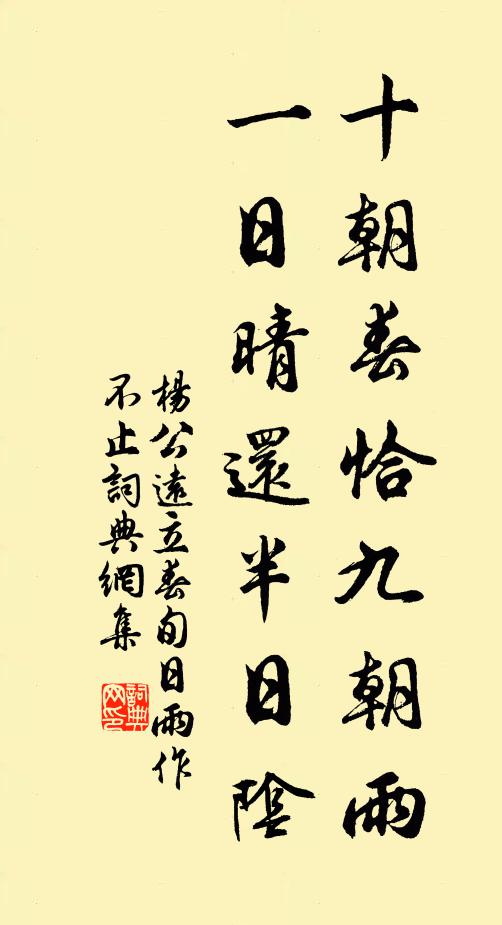 十朝春恰九朝雨
一日晴還半日陰
楊公遠立春旬日雨作
不止詞典網集
詞典网印